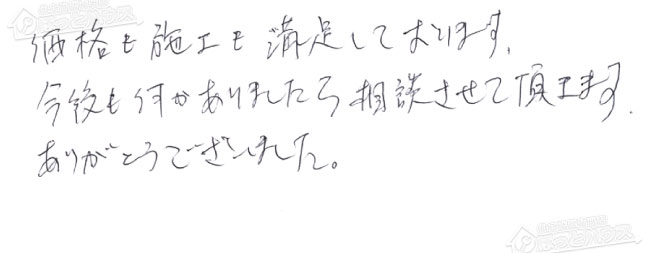 価格も施工も満足しております.
今後も何かありましたら相談させて頂きます.
ありがとうございました。